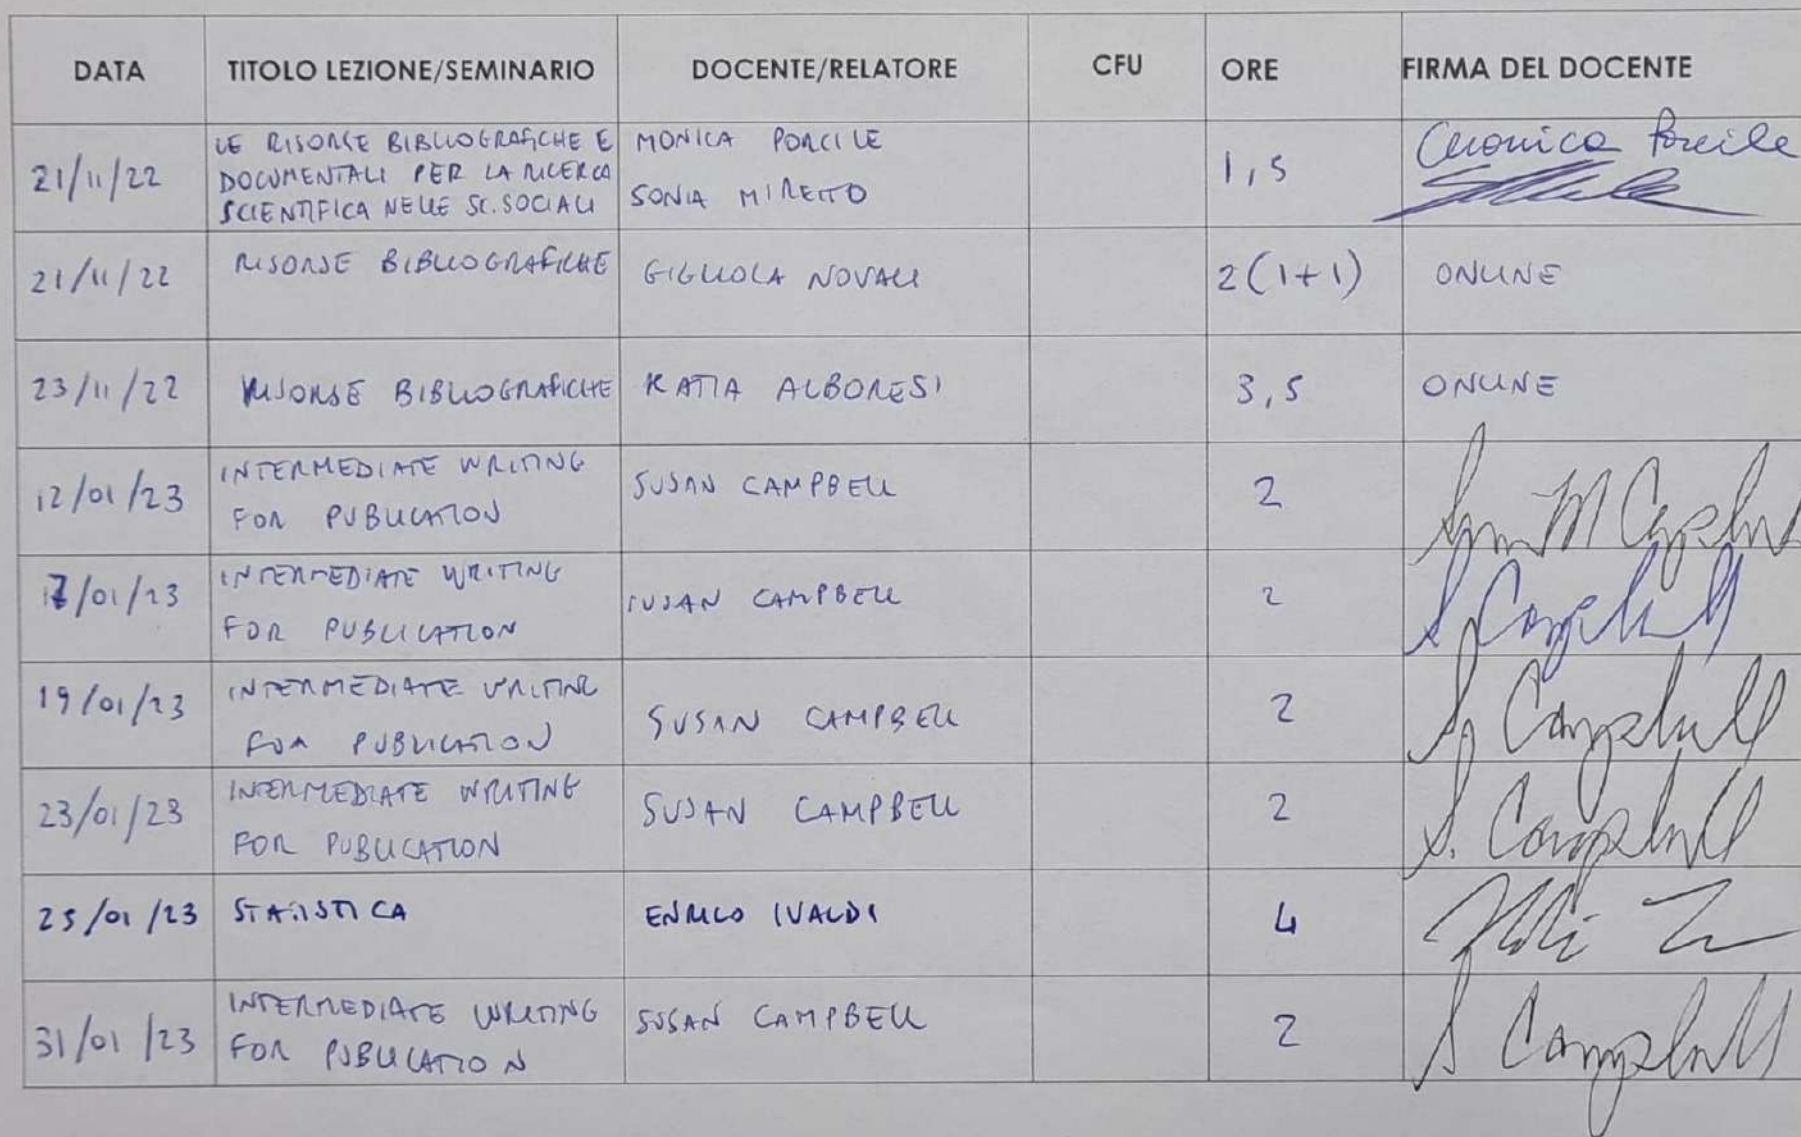 DATA TITOLO LEZIONE/SEMINARIO DOCENTE/RELATORE CFU ORE FIRMA DEL DOCENTE
21/11/22 LE RISORSE BIBLIOGRAFICHE E DOCUMENTALI PER LA RICERCA SCIENTIFICA NELLE SC. SOCIALI MONICA PORCILE SONIA MIRETTO 1,5 Monica Porcile
21/11/22 RISORSE BIBLIOGRAFICHE GIGLIOLA NOVALI 2(1+1) ONLINE
23/11/22 RISORSE BIBLIOGRAFICHE KATIA ALBORESI 3,5 ONLINE
12/01/23 INTERMEDIATE WRITING FOR PUBLICATION SUSAN CAMPBELL 2 Susan M Campbell
17/01/23 INTERMEDIATE WRITING FOR PUBLICATION SUSAN CAMPBELL 2 S Campbell
19/01/23 INTERMEDIATE WRITING FOR PUBLICATION SUSAN CAMPBELL 2 S Campbell
23/01/23 INTERMEDIATE WRITING FOR PUBLICATION SUSAN CAMPBELL 2 S. Campbell
25/01/23 STATISTICA ENRICO IVALDI 4
31/01/23 INTERMEDIATE WRITING FOR PUBLICATION SUSAN CAMPBELL 2 S Campbell